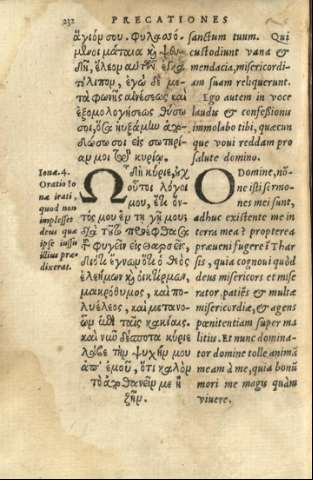 232 PRECATIONES
ἅγιόν σου. Φυλασσό-
μενοι μάταια καὶ ψευ-
δῆ, ἔλεον αὐτῶν ἐγκα-
τέλιπον, ἐγὼ δὲ με-
τὰ φωνῆς αἰνέσεως καὶ
ἐξομολογήσεως θύσω
σοι, ὅσα ηὐξάμην ἀπο-
δώσω σοι εἰς σωτηρί-
αν μοι τῷ κυρίῳ.
sanctum tuum. Qui
custodiunt vana &
mendacia, misericordi-
am suam reliquerunt.
Ego autem in voce
laudis & confessionis
immolabo tibi, quæcun
que voui reddam pro
salute domino.
Ionæ.4.
Oratio Io
næ irati,
quod non
implesset
deus quæ
ipse iussu
illius præ
dixerat.
Ὦ Δὴ κύριε, οὐχ
οὗτοι λόγοι
μου, ἔτι ὄν-
τός μου ἐν τῇ γῇ μου;
διὰ τοῦτο προέφθασα
τοῦ φυγεῖν εἰς Θαρσεῖς,
διότι ἔγνων ὅτι ὁ θεὸς
ἐλεήμων καὶ οἰκτίρμων,
μακρόθυμος, καὶ πο-
λυέλεος, καὶ μετανο-
ῶν ἐπὶ ταῖς κακίαις.
καὶ νῦν δέσποτα κύριε
λάβε τὴν ψυχήν μου
ἀπ' ἐμοῦ, ὅτι καλὸν
τὸ ἀποθανεῖν με ἢ
ζῆν.
O Domine, nó-
ne isti sermo-
nes mei sunt,
adhuc existente me in
terra mea? propterea
præueni fugere in Thar
sis, quia cognoui quòd
deus misericors et mise
rator, patiēs & multæ
misericordiæ, & agens
pœnitentiam super ma
litius. Et nunc domina-
tor domine tolle animā
meam à me, quia bonū
mori me magis quàm
viuere.